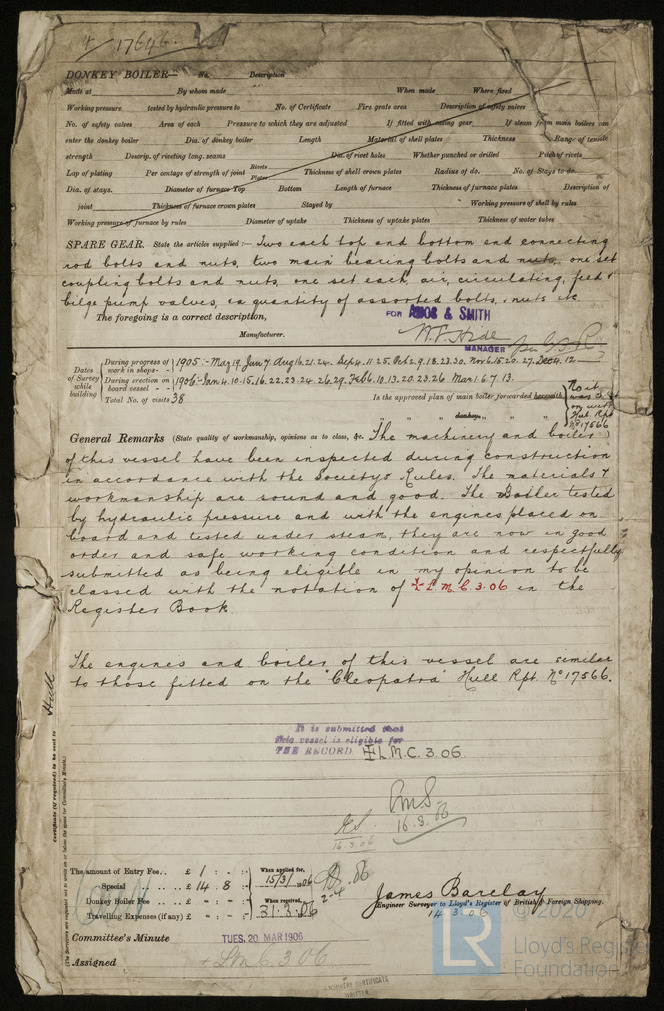 17646.
DONKEY BOILER— No. Description
Made at By whom made When made Where fixed
Working pressure tested by hydraulic pressure to No. of Certificate Fire grate area Description of safety valves
No. of safety valves Area of each Pressure to which they are adjusted If fitted with easing gear If steam from main boilers can
enter the donkey boiler Dia. of donkey boiler Length Material of shell plates Thickness Range of tensile
strength Descrip. of riveting long. seams Dia. of rivet holes Whether punched or drilled Pitch of rivets
Lap of plating Per centage of strength of joint Rivets Plates Thickness of shell crown plates Radius of do. No. of Stays to do.
Dia. of stays. Diameter of furnace Top Bottom Length of furnace Thickness of furnace plates Description of
joint Thickness of furnace crown plates Stayed by Working pressure of shell by rules
Working pressure of furnace by rules Diameter of uptake Thickness of uptake plates Thickness of water tubes
SPARE GEAR. State the articles supplied:— Two each top and bottom end connecting
rod bolts and nuts, two main bearing bolts and nuts, one set
coupling bolts and nuts, one set each, air, circulating, feed &
bilge pump valves, a quantity of assorted bolts, nuts etc
The foregoing is a correct description,
FOR AMOS & SMITH
Manufacturer.
MANAGER
Dates of Survey while building
During progress of work in shops - - 1905:- May 19. Jun 7. Aug 16. 21. 24. Sep 4. 11. 25. Oct 2. 9. 18. 23. 30. Nov 6. 15. 20. 27. Dec 4. 12
During erection on board vessel - - - 1906:- Jan 4. 10. 15. 16. 22. 23. 24. 26. 29. Feb 6. 10. 13. 20. 23. 26 Mar 1. 6. 7. 13.
Total No. of visits 38
In the approved plan of main boiler forwarded herewith
" " " donkey " " "
No it
was
on with
Hull Rpt
No 17566
General Remarks (State quality of workmanship, opinions as to class, &c. The machinery and boiler
of this vessel have been inspected during construction
in accordance with the Society's Rules. The materials &
workmanship are sound and good. The Boiler tested
by hydraulic pressure and with the engines placed on
board and tested under steam, they are now in good
order and safe working condition and respectfully
submitted as being eligible in my opinion to be
classed with the notation of ✠ L.M.C. 3.06 in the
Register Book
The engines and boiler of this vessel are similar
to those fitted on the "Cleopatra" Hull Rpt No 17566.
It is submitted that
this vessel is eligible for
THE RECORD ✠ L.M.C. 3.06.
16.3.06
16.3.06
Hull
Certificate (if required) to be sent to
(The Surveyors are requested not to write on or below the space for Committee's Minute.)
The amount of Entry Fee.. £ 1 : - : -
When applied for,
15/3/1906
Special .. .. .. .. £ 14 . 8 : -
Donkey Boiler Fee .. .. £ - : - : -
When received,
31.3.06
Travelling Expenses (if any) £ - : - : -
James Barclay
Engineer Surveyor to Lloyd's Register of British & Foreign Shipping.
14.3.06
Committee's Minute TUES. 20 MAR 1906
Assigned + LMC 3.06
MACHINERY CERTIFICATE
WRITTEN
© 2020
LR
Lloyd's Register
Foundation